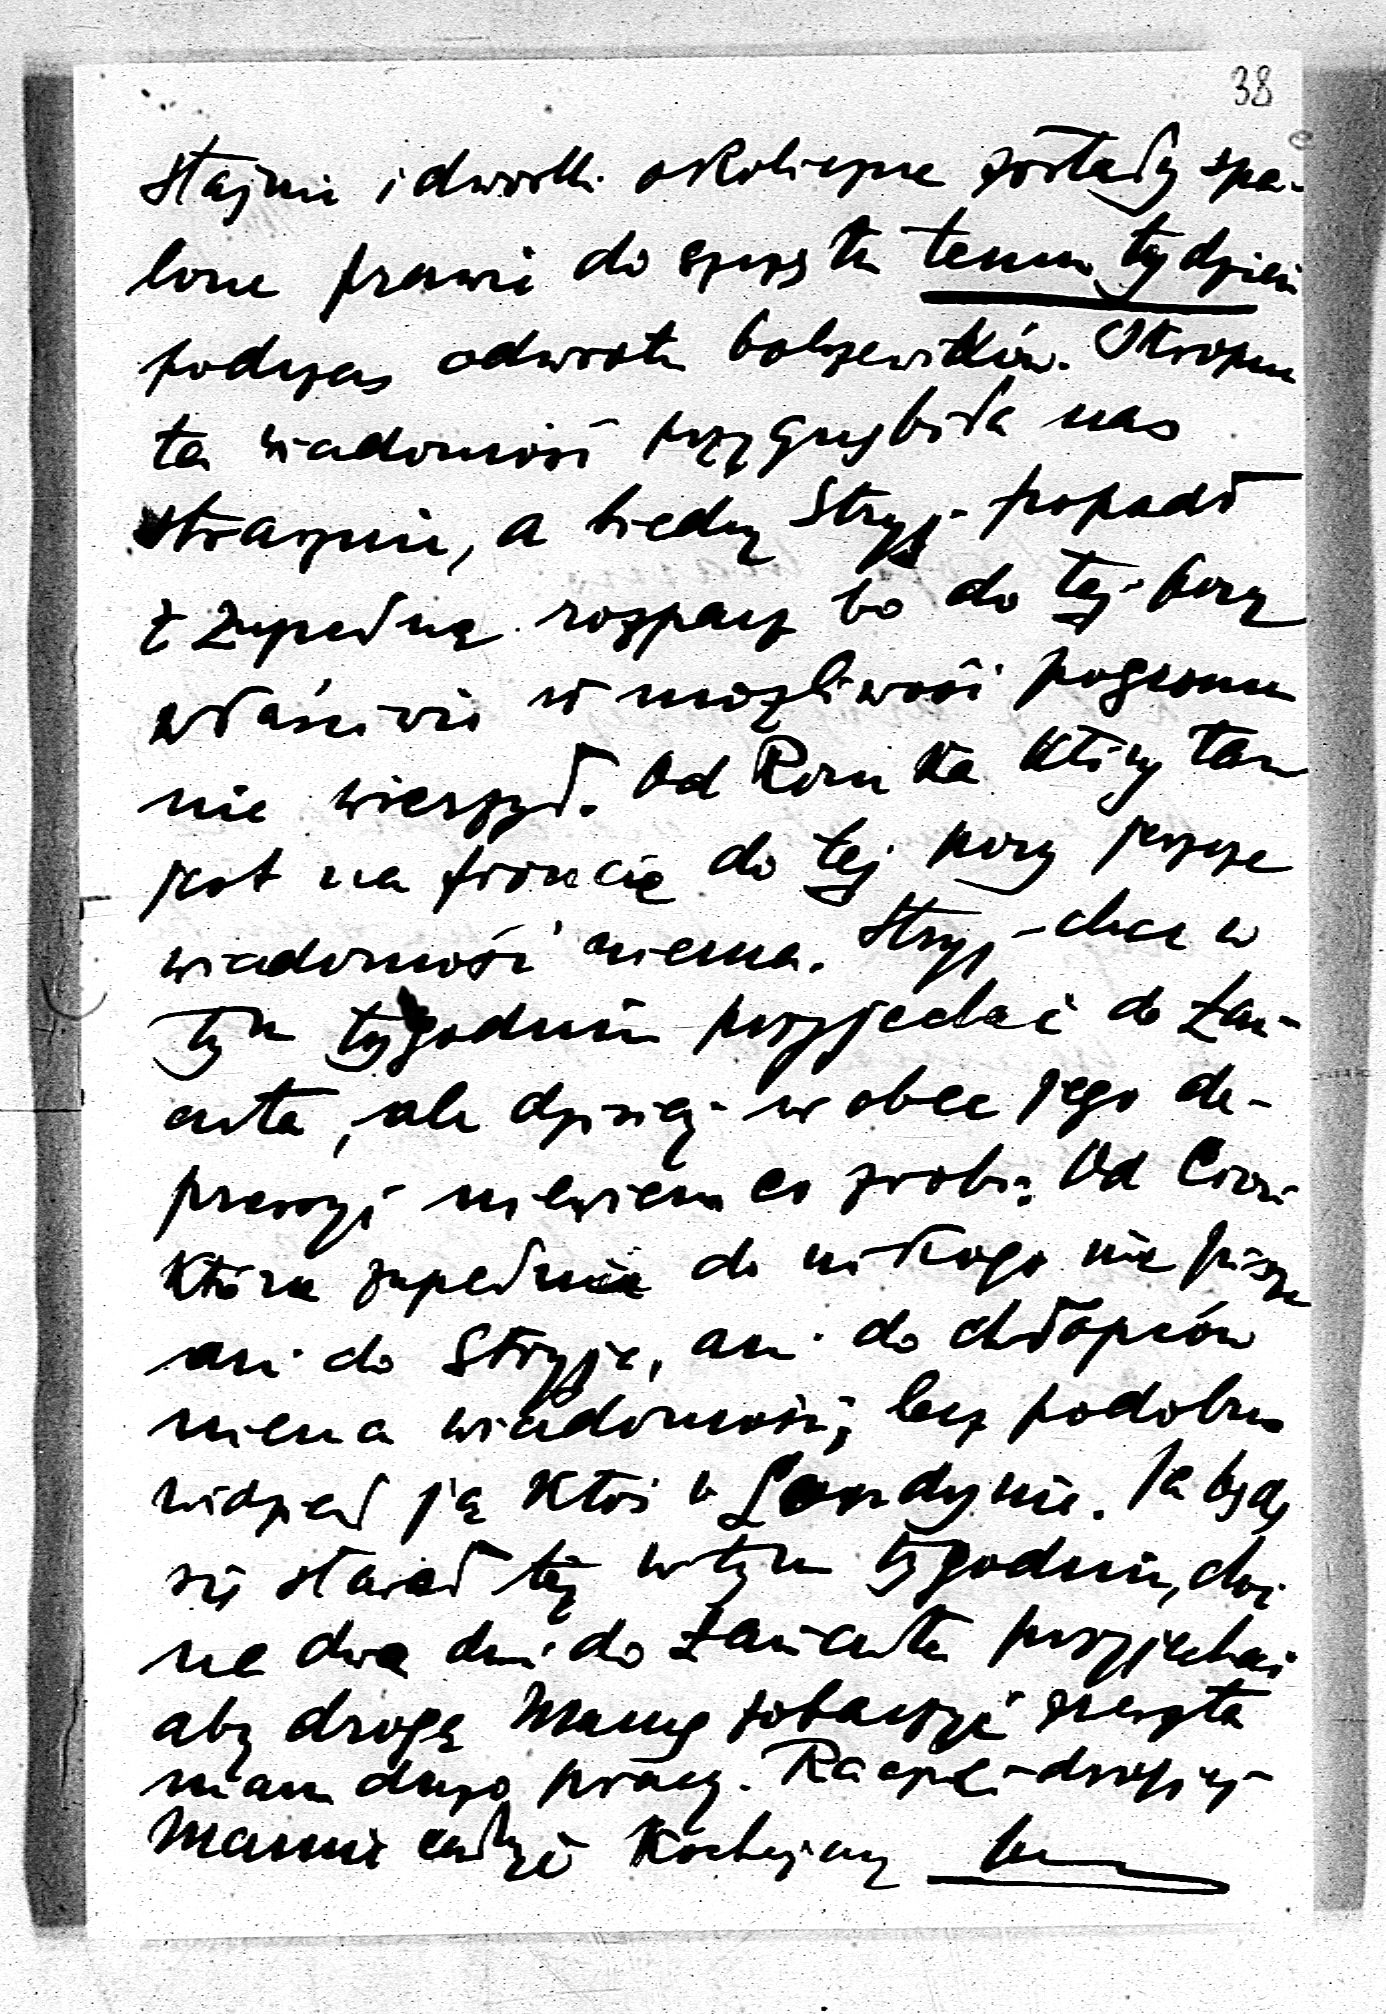 38
stajnie i dworki okoliczne zostały spa-
lone prawie do szczętu temu tydzień
podczas odwrotu bolszewików. Okropna
ta wiadomość przygnębiła nas
strasznie, a biedny Stryj popadł
w zupełną rozpacz bo do tej pory
właściwie w możliwość pogromu
nie wierzył. Od Romka który tam
jest na froncie do tej pory jeszcze
wiadomości niema. Stryj chce w
tym tygodniu przyjechać do Łań-
cuta, ale dzisiaj wobec jego de-
presyi niewiem co zrobi. Od
która zupełnie do nikogo nie pisze
ani do Stryja, ani do chłopców
niema wiadomości, lecz podobno
widział ją ktoś w Londynie. Ja będę
się starał też w tym tygodniu, choć
na dwa dni do Łańcuta przyjechać
aby drogą Mamę zobaczyć zresztą
mam dużo pracy. Rączki drogiej
Mamie całuję Kochający